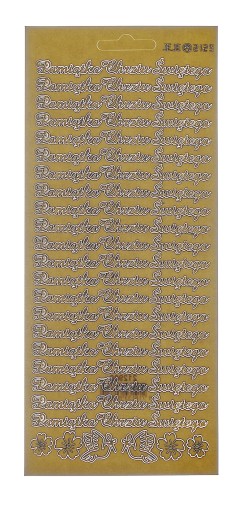 Pamiątka Chrztu Świętego
Pamiątka Chrztu Świętego
Pamiątka Chrztu Świętego
Pamiątka Chrztu Świętego
Pamiątka Chrztu Świętego
Pamiątka Chrztu Świętego
Pamiątka Chrztu Świętego
Pamiątka Chrztu Świętego
Pamiątka Chrztu Świętego
Pamiątka Chrztu Świętego
Pamiątka Chrztu Świętego
Pamiątka Chrztu Świętego
Pamiątka Chrztu Świętego
Pamiątka Chrztu Świętego
Pamiątka Chrztu Świętego
Pamiątka Chrztu Świętego
Pamiątka Chrztu Świętego
Pamiątka Chrztu Świętego
Pamiątka Chrztu Świętego
Pamiątka Chrztu Świętego
Pamiątka Chrztu Świętego